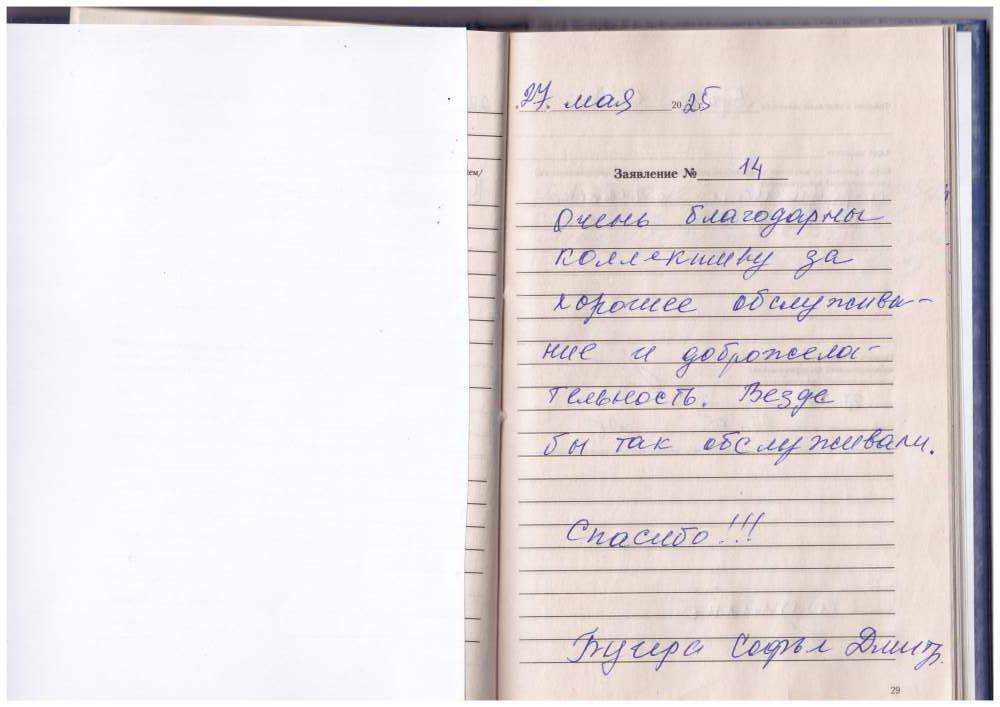 27. мая 2025
Заявление № 14
Очень благодарны
коллективу за
хорошее обслужива-
ние и доброжела-
тельность. Везде
бы так обслуживали.
Спасибо!!!
Софья Дмитр.
29